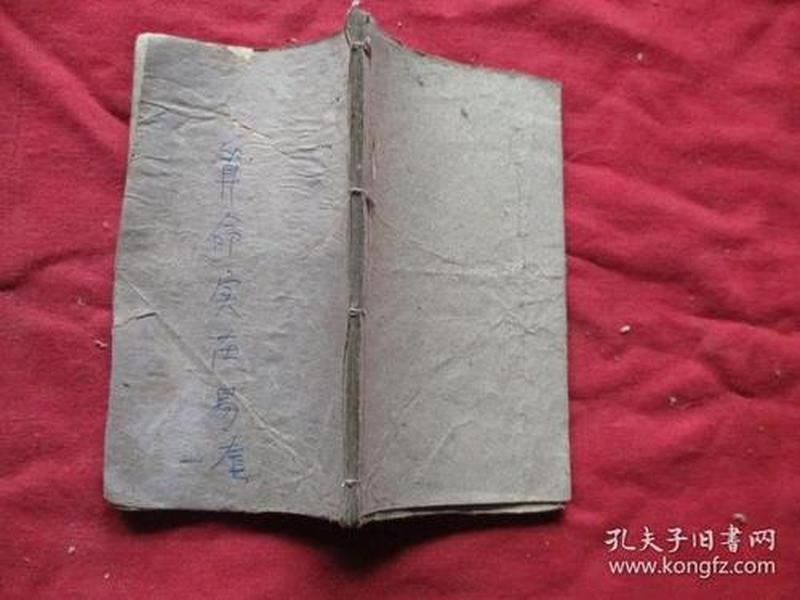 算命实在易查
一
孔夫子旧書网
www.kongfz.com